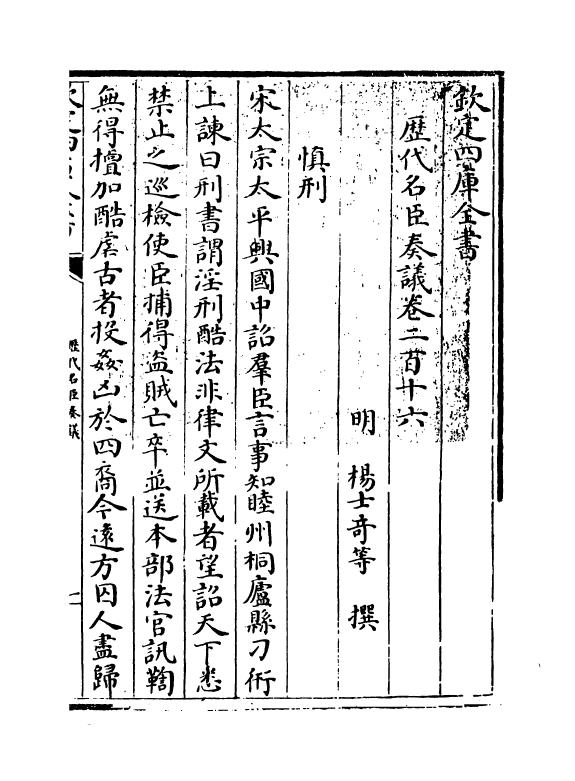 欽定四庫全書
歷代名臣奏議卷二百十六
明 楊士奇等 撰
慎刑
宋太宗太平興國中詔羣臣言事知睦州桐廬縣刁衎
上諫曰刑書謂淫刑酷法非律文所載者望詔天下悉
禁止之巡檢使臣捕得盜賊亡卒並送本部法官訊鞫
無得擅加酷虐古者投姦凶於四裔今遠方囚人盡歸
歷代名臣奏議
一